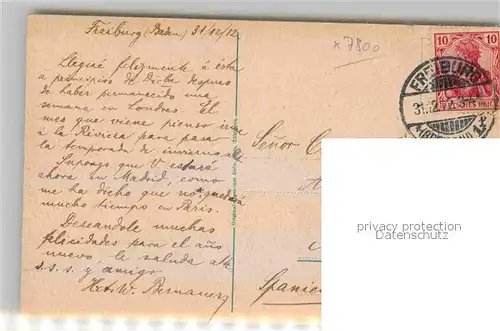 Freiburg (Baden) 31/12/12
x 7800
Llegué felizmente á ésta
a principios de Dicbe despues
de haber permanecido una
semana en Londres. El
mes que viene pienso ir
à la Riviera para pasar
la temporada de invierno allí
Supongo que V estará
ahora en Madrid, como
me ha dicho que no quedará
mucho tiempo en Paris.
Deseandole muchas
felicidades para el año
nuevo, le saluda att
s.s.s. y amigo
W. Bernauer
Señor
Spanien
10 10
DEUTSCHES REICH
FREIBURG
31.12
privacy protection
Datenschutz